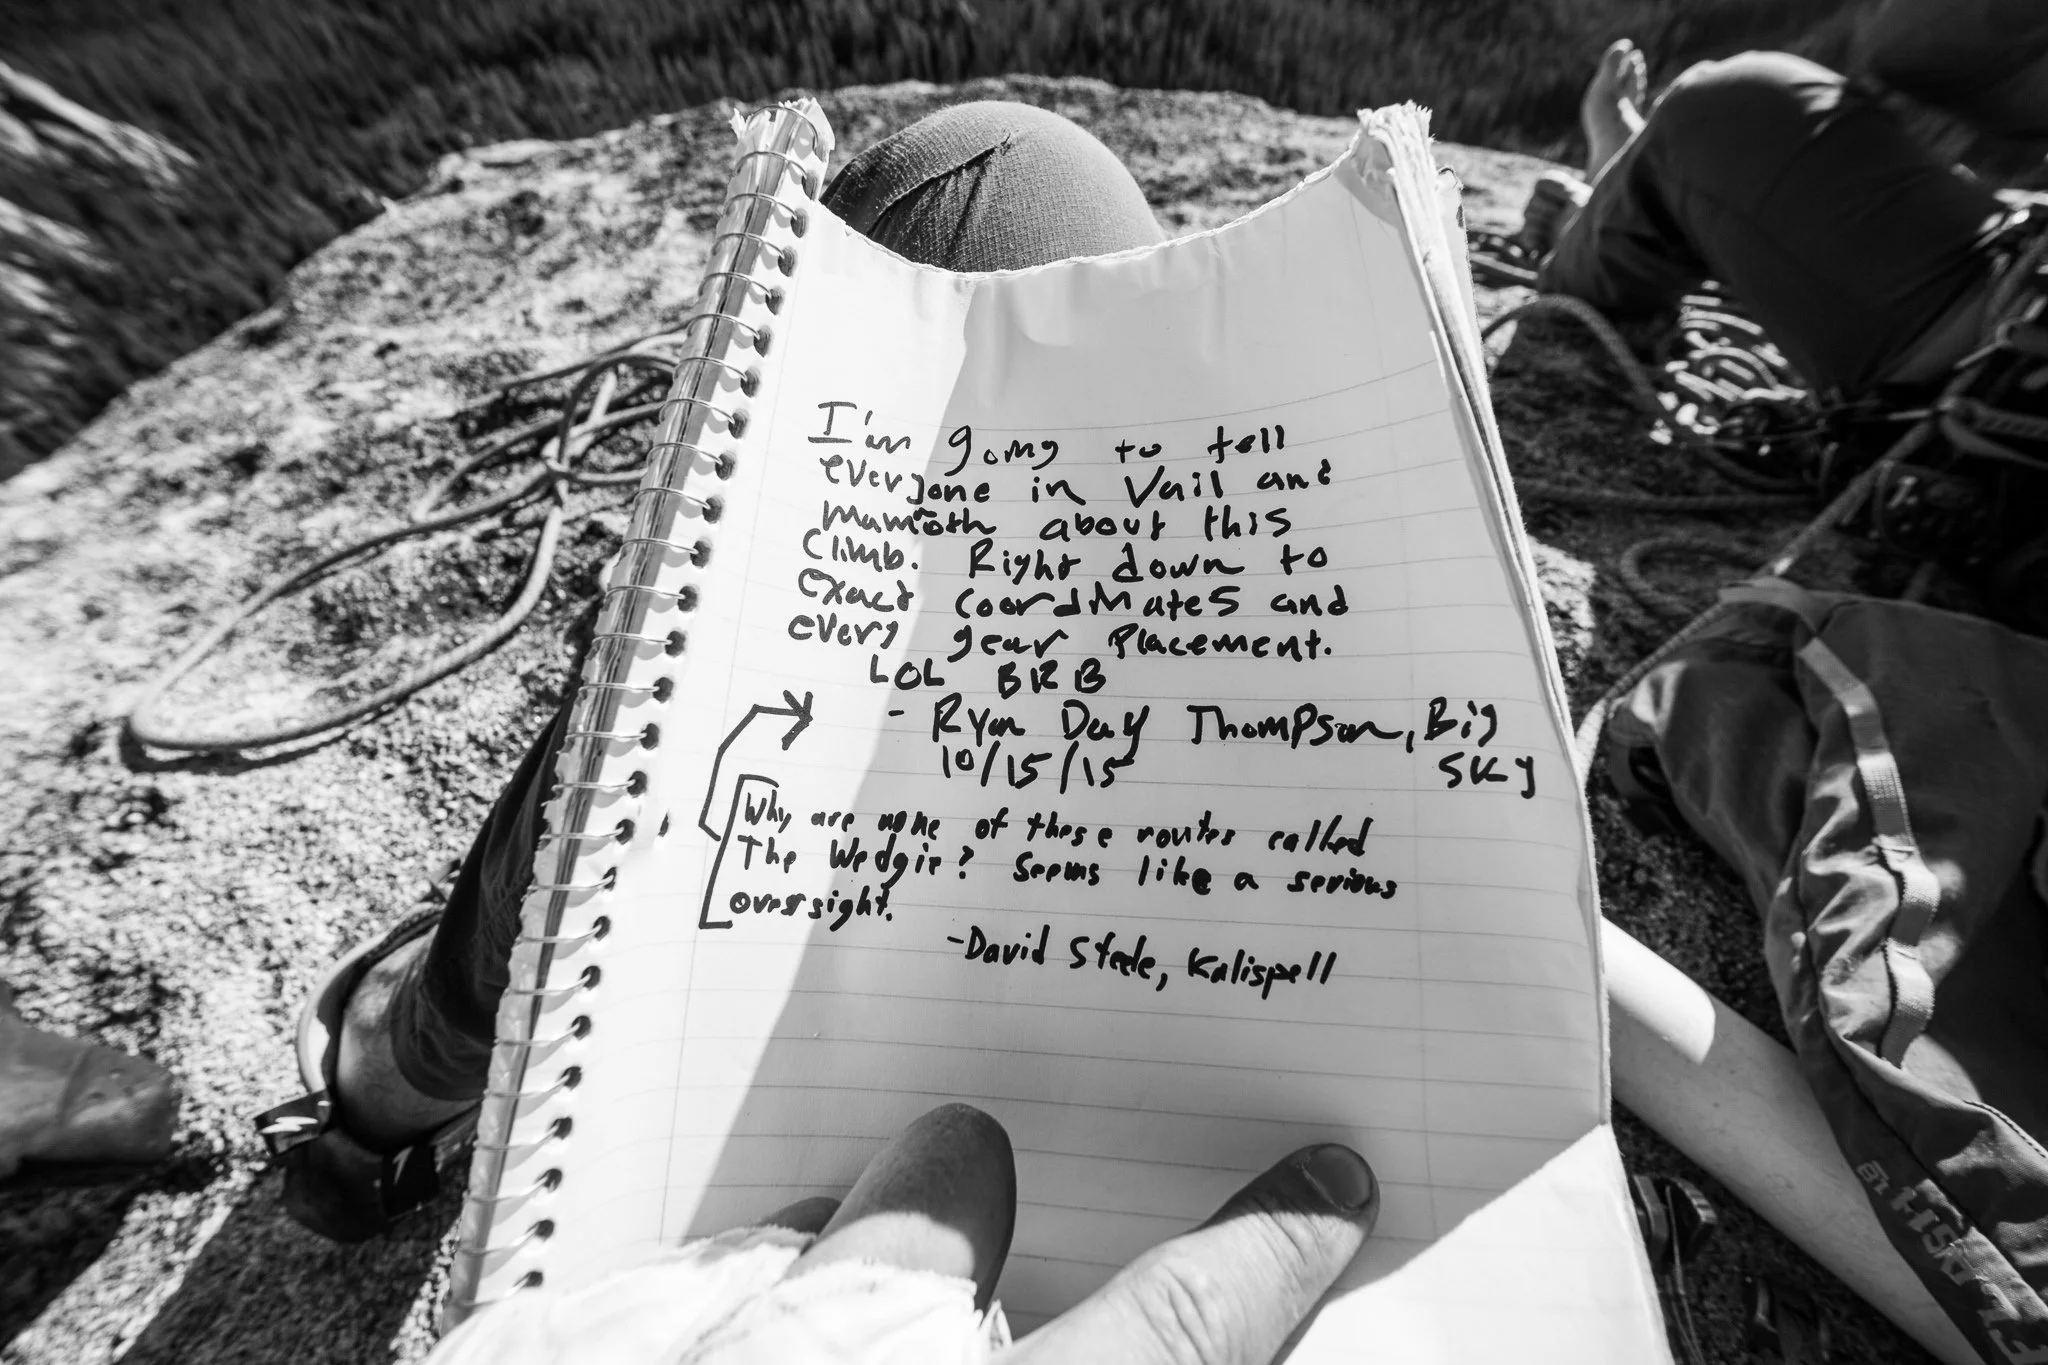 I'm going to tell
everyone in Vail and
Mammoth about this
Climb. Right down to
exact coordinates and
every gear placement.
LOL BRB
- Ryan Day Thompson, Big
Sky
10/15/15
Why are none of these routes called
The Wedgie? Seems like a serious
oversight.
-David Steele, Kalispell